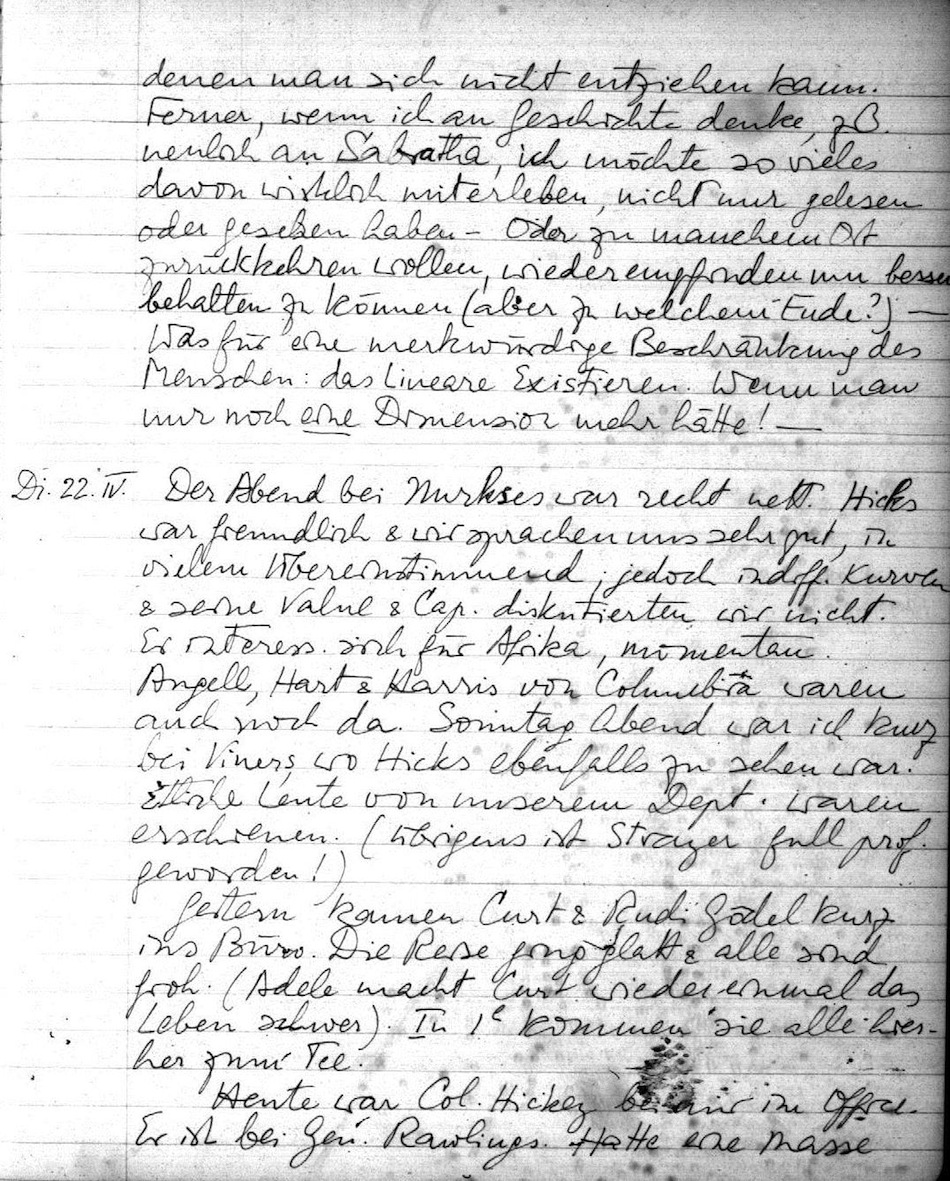 denen man sich nicht entziehen kann.
Ferner, wenn ich an Geschichte denke, zB.
neulich an Sabratha, ich möchte so vieles
davon wirklich miterleben, nicht nur gelesen
oder gesehen haben – Oder zu manchem Ort
zurückkehren wollen, wieder empfinden um besser
behalten zu können (aber zu welchem Ende?) —
Was für eine merkwürdige Beschränkung des
Menschen: das lineare Existieren. Wenn man
nur noch eine Dimension mehr hätte! —
Di. 22. IV. Der Abend bei Nurkses war recht nett. Hicks
war freundlich & wir sprachen uns sehr gut, in
vielem übereinstimmend; jedoch indiff. Kurven
& seine Value & Cap. diskutierten wir nicht.
Er interess. sich für Afrika, momentan.
Angell, Hart & Harris von Columbia waren
auch noch da. Sonntag Abend war ich kurz
bei Viners, wo Hicks ebenfalls zu sehen war.
Etliche Leute von unserem Dept. waren
erschienen. (Übrigens ist Strayer full prof.
geworden!)
Gestern kamen Curt & Rudi Gödel kurz
ins Büro. Die Reise ging glatt & alle sind
froh. (Adele macht Curt wieder einmal das
Leben schwer). In 1<sup>e</sup> kommen sie alle hier-
her zum Tee.
Heute war Col. Hickey bei mir im Office.
Er ist bei Gen. Rawlings. Hatte eine Masse